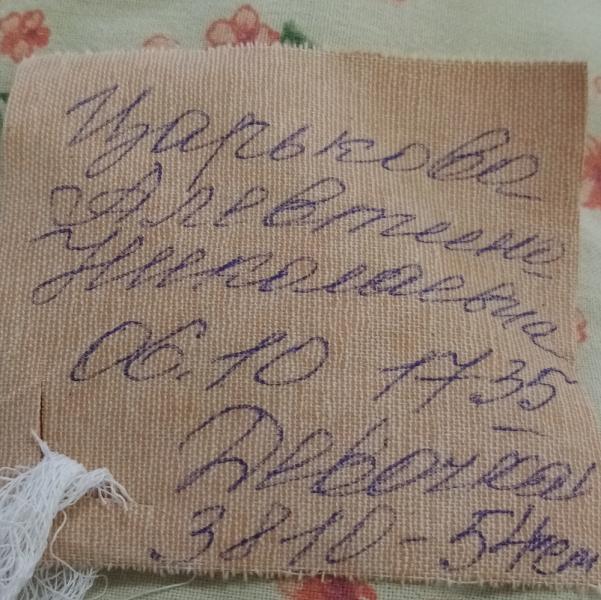 Царькова
Алевтина
Николаевна
06.10 17 35
Девочка
3810 - 54 см